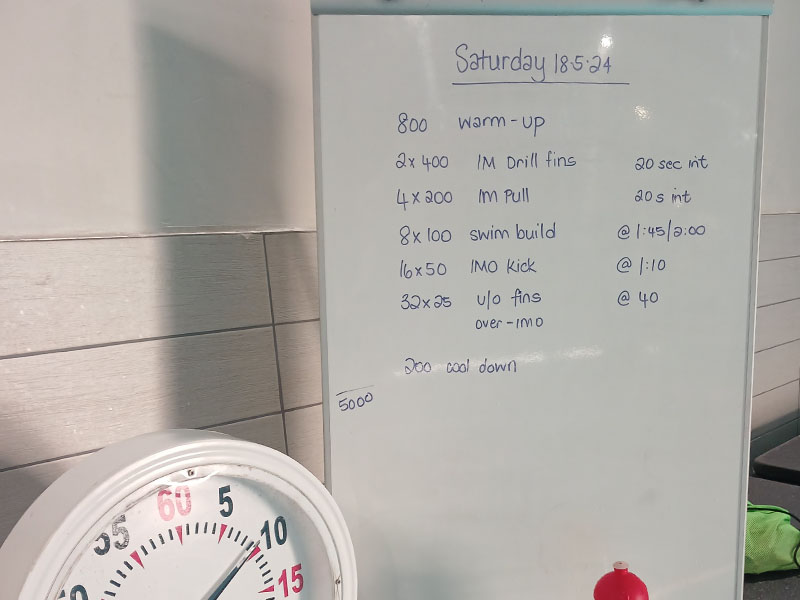 Saturday 18.5.24
800 warm-up
2x400 IM Drill fins 20 sec int
4x200 IM Pull 20s int
8x100 swim build @ 1:45/2:00
16x50 IMO Kick @ 1:10
32x25 u/o fins @ 40
over-IMO
200 cool down
5000
55 60 5
10
15